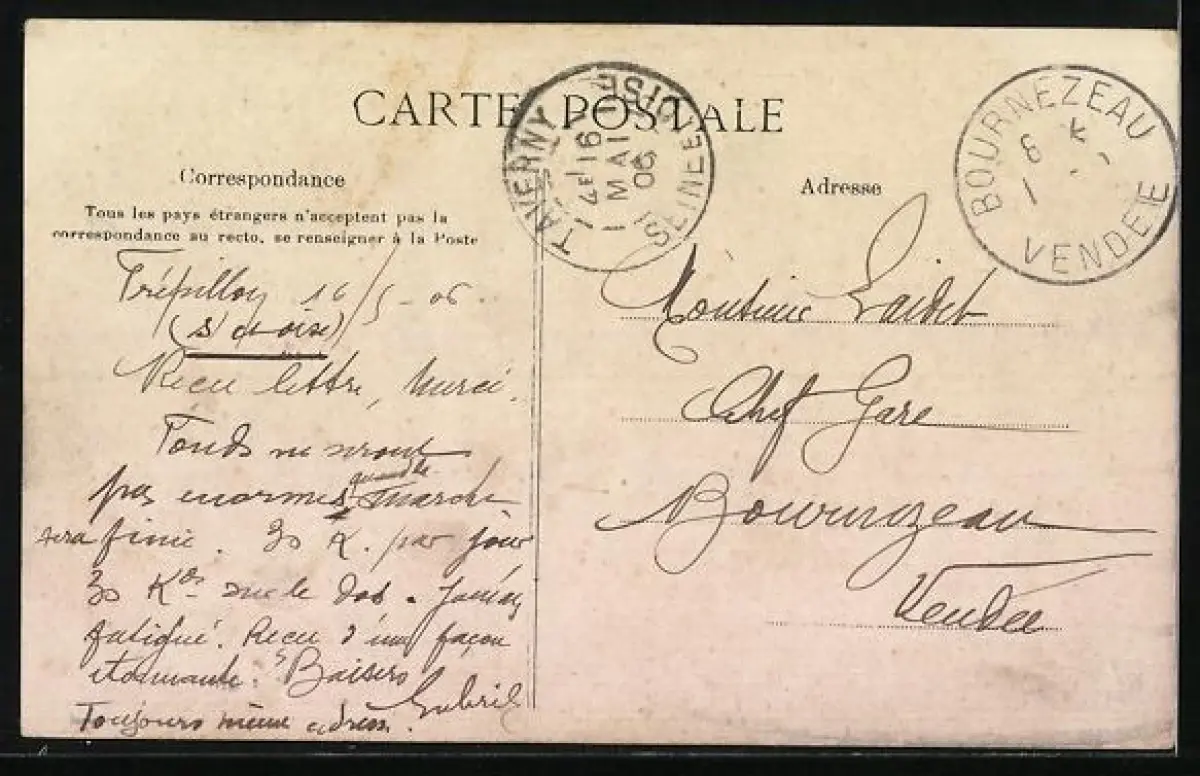 CARTE POSTALE
Correspondance
Tous les pays étrangers n'acceptent pas la
correspondance au recto, se renseigner à la Poste
16/5-06.
(S et oise)
Reçu lettre, Merci.
Fonds ne seront
pas enormes quand la marche
sera finie. 30 K. par jour
30 Kos sur le dos. Jamais
fatigué. Reçu d'une façon
étonnante. Baisers
Gabriel
Toujours même adresse.
TAVERNY
SEINE ET OISE
16
MAI
06
Adresse
Monsieur Laidet
Chef Gare
Bournezeau
Vendée
BOURNEZEAU
VENDÉE